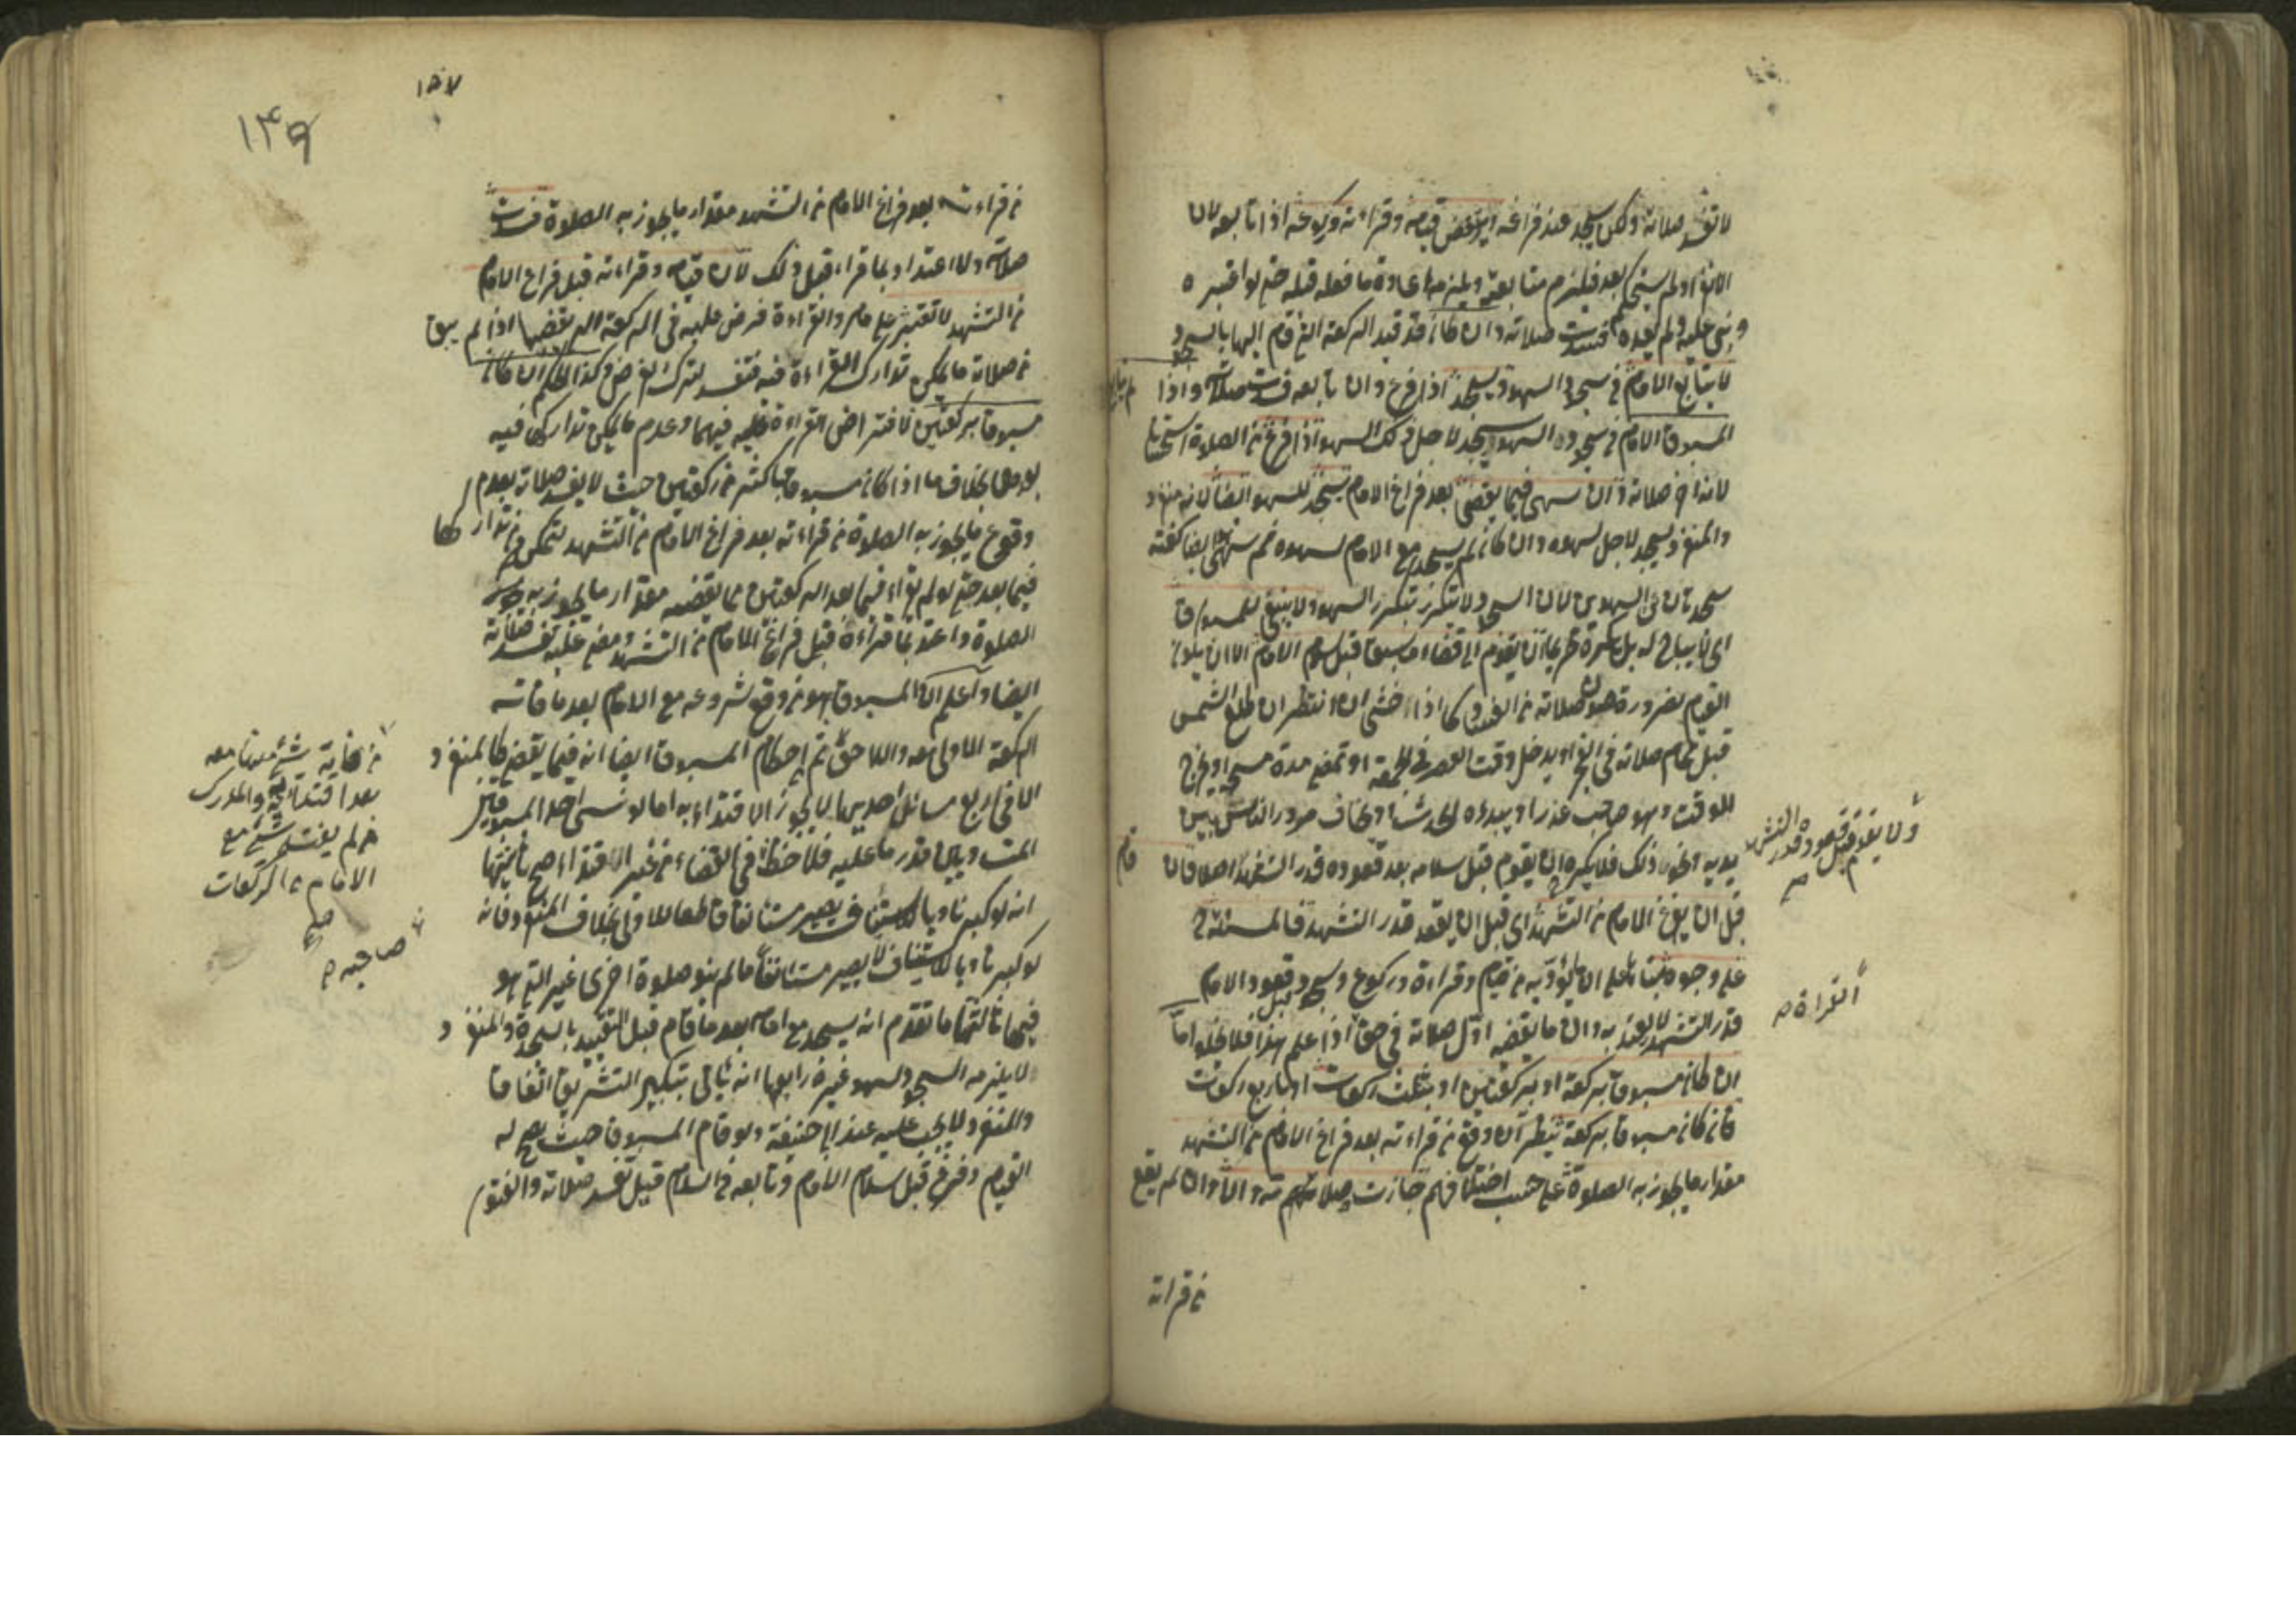 لا تفسد صلاته ولكن يسجد عند فراغه قيامه وقراءته وركوعه اذا تابعه لان
الانفراد لم يستحكم بعد فيلزم متابعته ويلزمه اعادة ما فعله قبله حتى لو اعتبره
وبنى عليه ولم يعده فسدت صلاته وان كان قد قيد الركعة التي قام اليها بالسجود
لا يتابع الامام في سجود السهو ويسجد اذا فرغ وان تابعه فسدت صلاته واذا
المسبوق الامام في سجوده السهو يسجد لاجل ذلك السهو اذا فرغ من الصلوة استحسانا
لانه اخر صلاته وان سهى فيما يقضى بعد فراغ الامام يسجد للسهو ايضا لانه منفرد
والمنفرد يسجد لاجل سهوه وان كان لم يسجد مع الامام لسهوه ثم سهى ايضا كفته
سجدتان عن السهوين لان السجود لا يتكرر بتكرر السهو ولا ينبغي للمسبوق
اى لا يباح له بل يكره تحريما ان يقوم الى قضاء ما سبق قبل سلام الامام الا ان يكون
القيام لضرورة صون صلاته عن الفساد كما اذا خشى ان انتظر ان تطلع الشمس
قبل تمام صلاته في الفجر او يدخل وقت العصر في الجمعة او تمضى مدة مسحه او يخرج
الوقت وهو صاحب عذر او يبدره الحدث او يخاف مرور الناس بين
يديه ونحو ذلك فلا يكره ان يقوم قبل سلامه بعد قعوده قدر التشهد اصلا فان
قام
ولا يقوم قبل قعوده قدر التشهد
صح
قبل ان يفرغ الامام من التشهد اى قبل ان يقعد قدر التشهد فالمسئلة
على وجوه بناء على ان ما يؤديه من قيام وقراءة وركوع وسجود قبل قعود الامام
قدر التشهد لا يعتد به وان ما يقضيه اول صلاته في حق القراءة اذا علم هذا فلا يخلو اما
ان كان مسبوقا بركعة او بركعتين او بثلث ركعات او باربع ركعات
فان كان مسبوقا بركعة ينظر ان وقع من قراءته بعد فراغ الامام من التشهد
مقدار ما يجوز به الصلوة على حسب اختلافهم جازت صلاته والا وان لم يقع
من قراءته
١٤٩
من قراءته بعد فراغ الامام من التشهد مقدار ما يجوز به الصلوة فسدت
صلاته ولا اعتداد بما قراء قبل ذلك لان قيامه وقراءته قبل فراغ الامام
من التشهد لا تعتبر على ما مر والقراءة فرض عليه في الركعة التى يقضيها اذ لم يبق
من صلاته ما يمكن تدارك القراءة فيه فتفسد لترك الفرض وكذا الحكم ان كان
مسبوقا بركعتين لافتراض القراءة عليه فيهما وعدم ما يمكن تداركها فيه
بعدهما بخلاف ما اذا كان مسبوقا باكثر من ركعتين حيث لا يفسد صلاته بعدم
وقوع ما يجوز به الصلوة من قراءته بعد فراغ الامام من التشهد لتمكنه من تداركها
فيما بعد حتى لو لم يقراء فيما بعد الركعتين مما يقضيه مقدار ما يجوز به
الصلوة واعتد بما قراءه قبل فراغ الامام من التشهد ومضى عليه تفسد صلاته
ايضا واعلم ان المسبوق هو من وقع شروعه مع الامام بعد ما فاته
الركعة الاولى معه واللاحق ثم احكام المسبوق ايضا انه فيما يقضى كالمنفرد
الا في اربع مسائل احديها لا يجوز الاقتداء به اما لو نسى احد المسبوقين
قدر ما عليه فلاحظ في القضاء من غير الاقتداء صح ثانيتها
انه لو كبر ناويا الاستيناف يصير مستانفا قاطعا للاولى بخلاف المنفرد فانه
لو كبر ناويا الاستيناف لا يصير مستانفا ما لم ينو صلوة اخرى غير التى هو
فيها ثالثتها ما تقدم انه يسجد مع امامه بعد ما قام قبل التقييد بالسجدة والمنفرد
لا يلزمه السجود لسهو غيره رابعها انه ياتى بتكبير التشريق اتفاقا
والمنفرد لا يجب عليه عند ابى حنيفة ولو قام المسبوق حيث يصح له
القيام وفرغ قبل سلام الامام وتابعه في السلام قيل تفسد صلاته والفتوى
شئ منها معه
بعد اقتدائه والمدرك
من لم يفته شئ مع
الامام من الركعات
صح
صاحبه